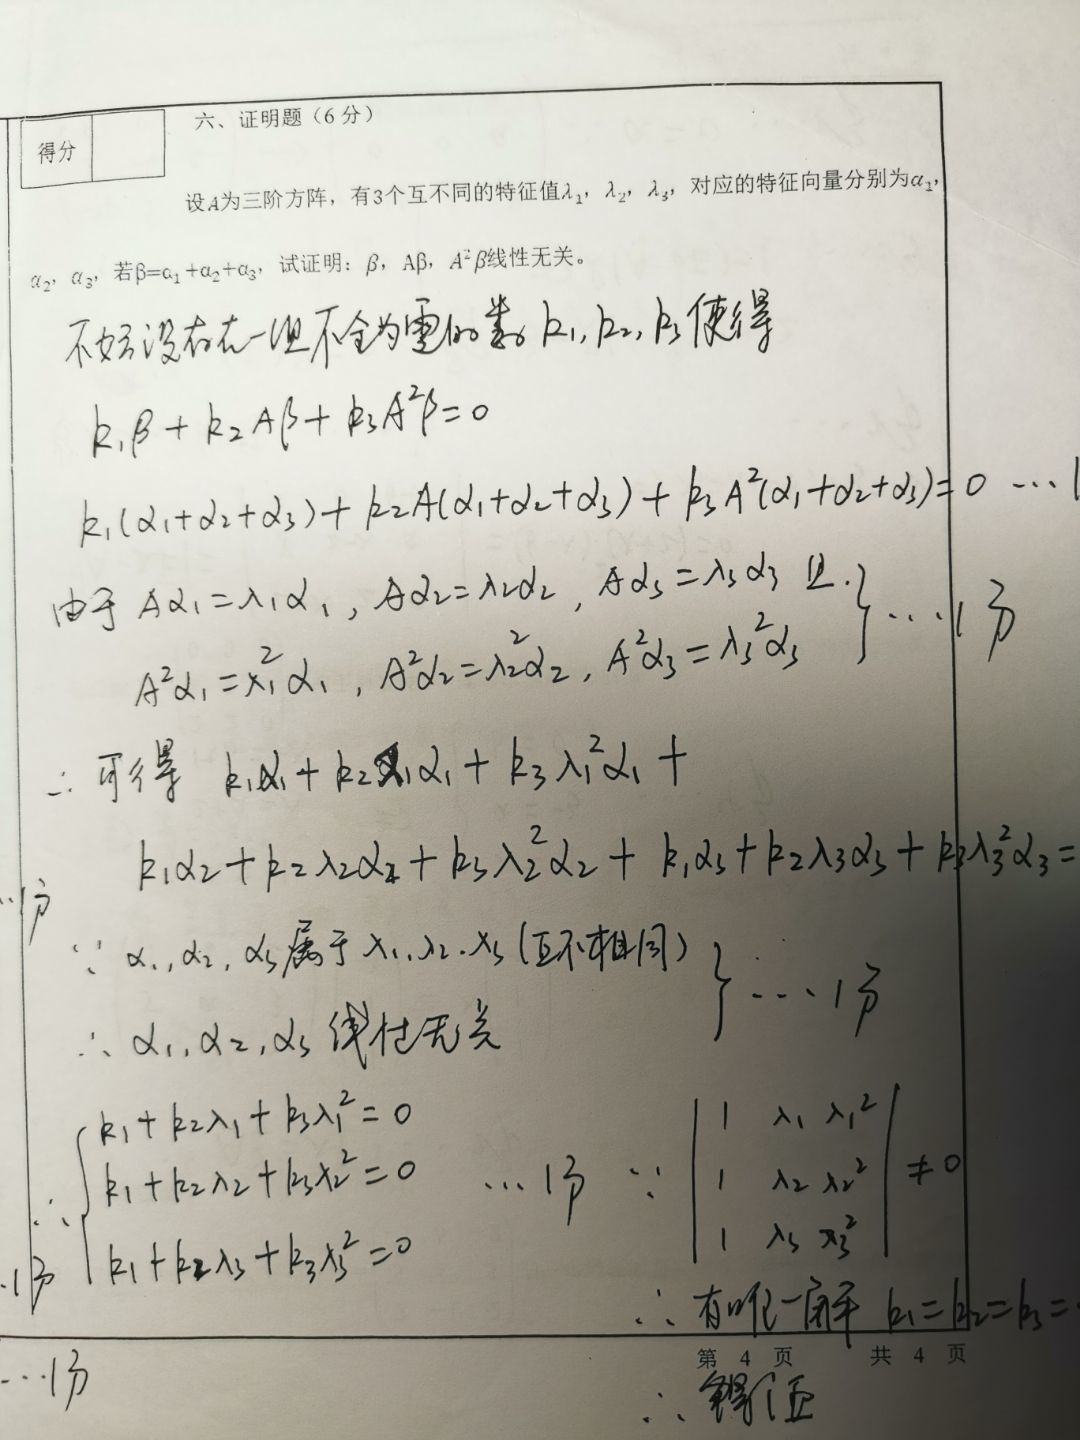 六、证明题（6 分）
得分
设A为三阶方阵，有3个互不同的特征值λ₁，λ₂，λ₃，对应的特征向量分别为α₁，
α₂，α₃，若β=α₁+α₂+α₃，试证明：β，Aβ，A²β线性无关。
不妨设存在一组不全为零的数 k₁, k₂, k₃ 使得
k₁β + k₂Aβ + k₃A²β = 0
k₁(α₁+α₂+α₃) + k₂A(α₁+α₂+α₃) + k₃A²(α₁+α₂+α₃) = 0 …1
由于 Aα₁=λ₁α₁, Aα₂=λ₂α₂, Aα₃=λ₃α₃ 且
A²α₁=λ₁²α₁, A²α₂=λ₂²α₂, A²α₃=λ₃²α₃ } …1分
∴ 可得 k₁α₁ + k₂λ₁α₁ + k₃λ₁²α₁ +
k₁α₂ + k₂λ₂α₂ + k₃λ₂²α₂ + k₁α₃ + k₂λ₃α₃ + k₃λ₃²α₃ =
…1分
∵ α₁, α₂, α₃ 属于 λ₁, λ₂, λ₃ (互不相同)
∴ α₁, α₂, α₃ 线性无关 } …1分
∴ { k₁ + k₂λ₁ + k₃λ₁² = 0
k₁ + k₂λ₂ + k₃λ₂² = 0 …1分
k₁ + k₂λ₃ + k₃λ₃² = 0
∵ | 1 λ₁ λ₁² |
| 1 λ₂ λ₂² | ≠ 0
| 1 λ₃ λ₃² |
…1分
∴ 有唯一解 k₁ = k₂ = k₃ =
第 4 页 共 4 页
…1分
∴ 得证